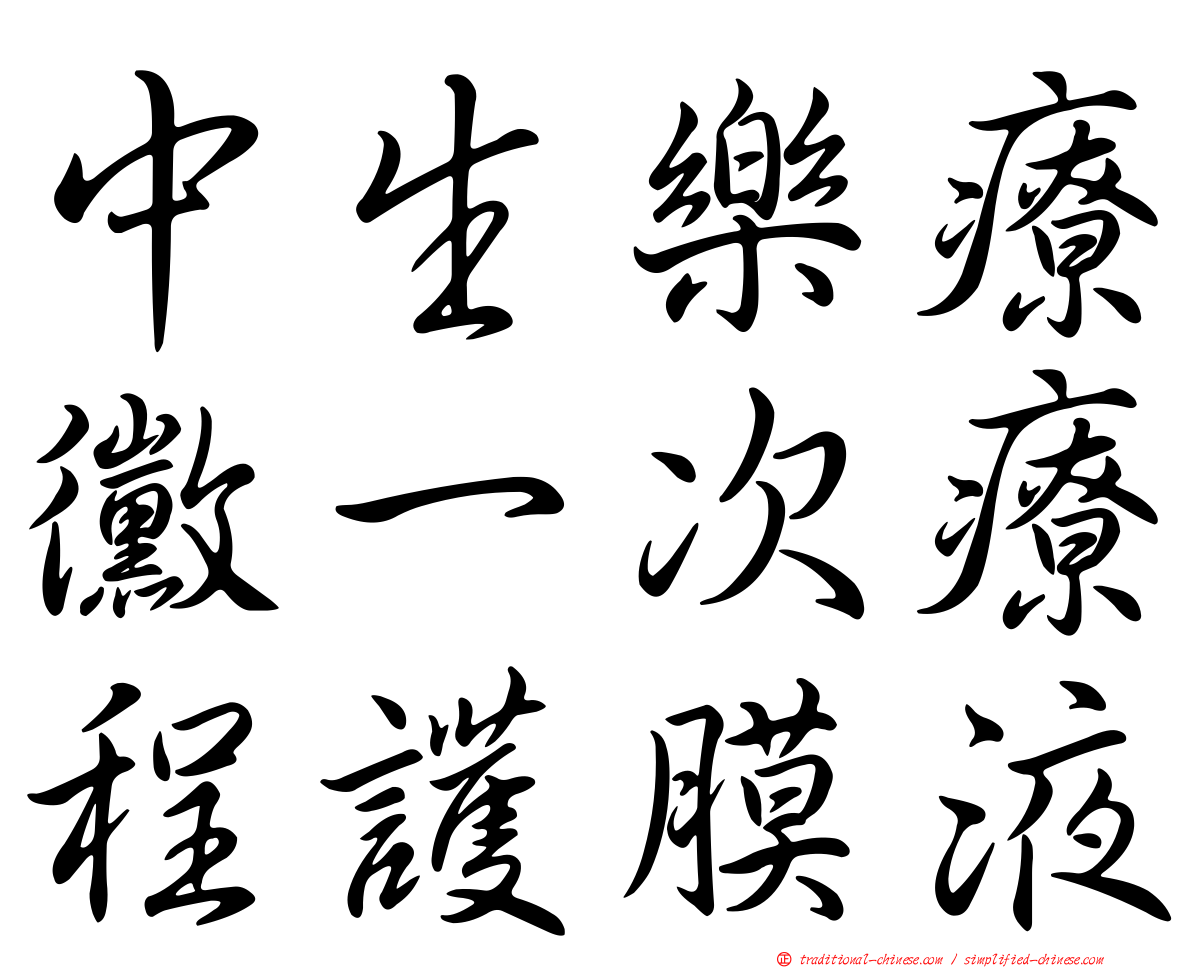 中生樂療
黴一次療
程護膜液
正 traditional-chinese.com / simplified-chinese.com